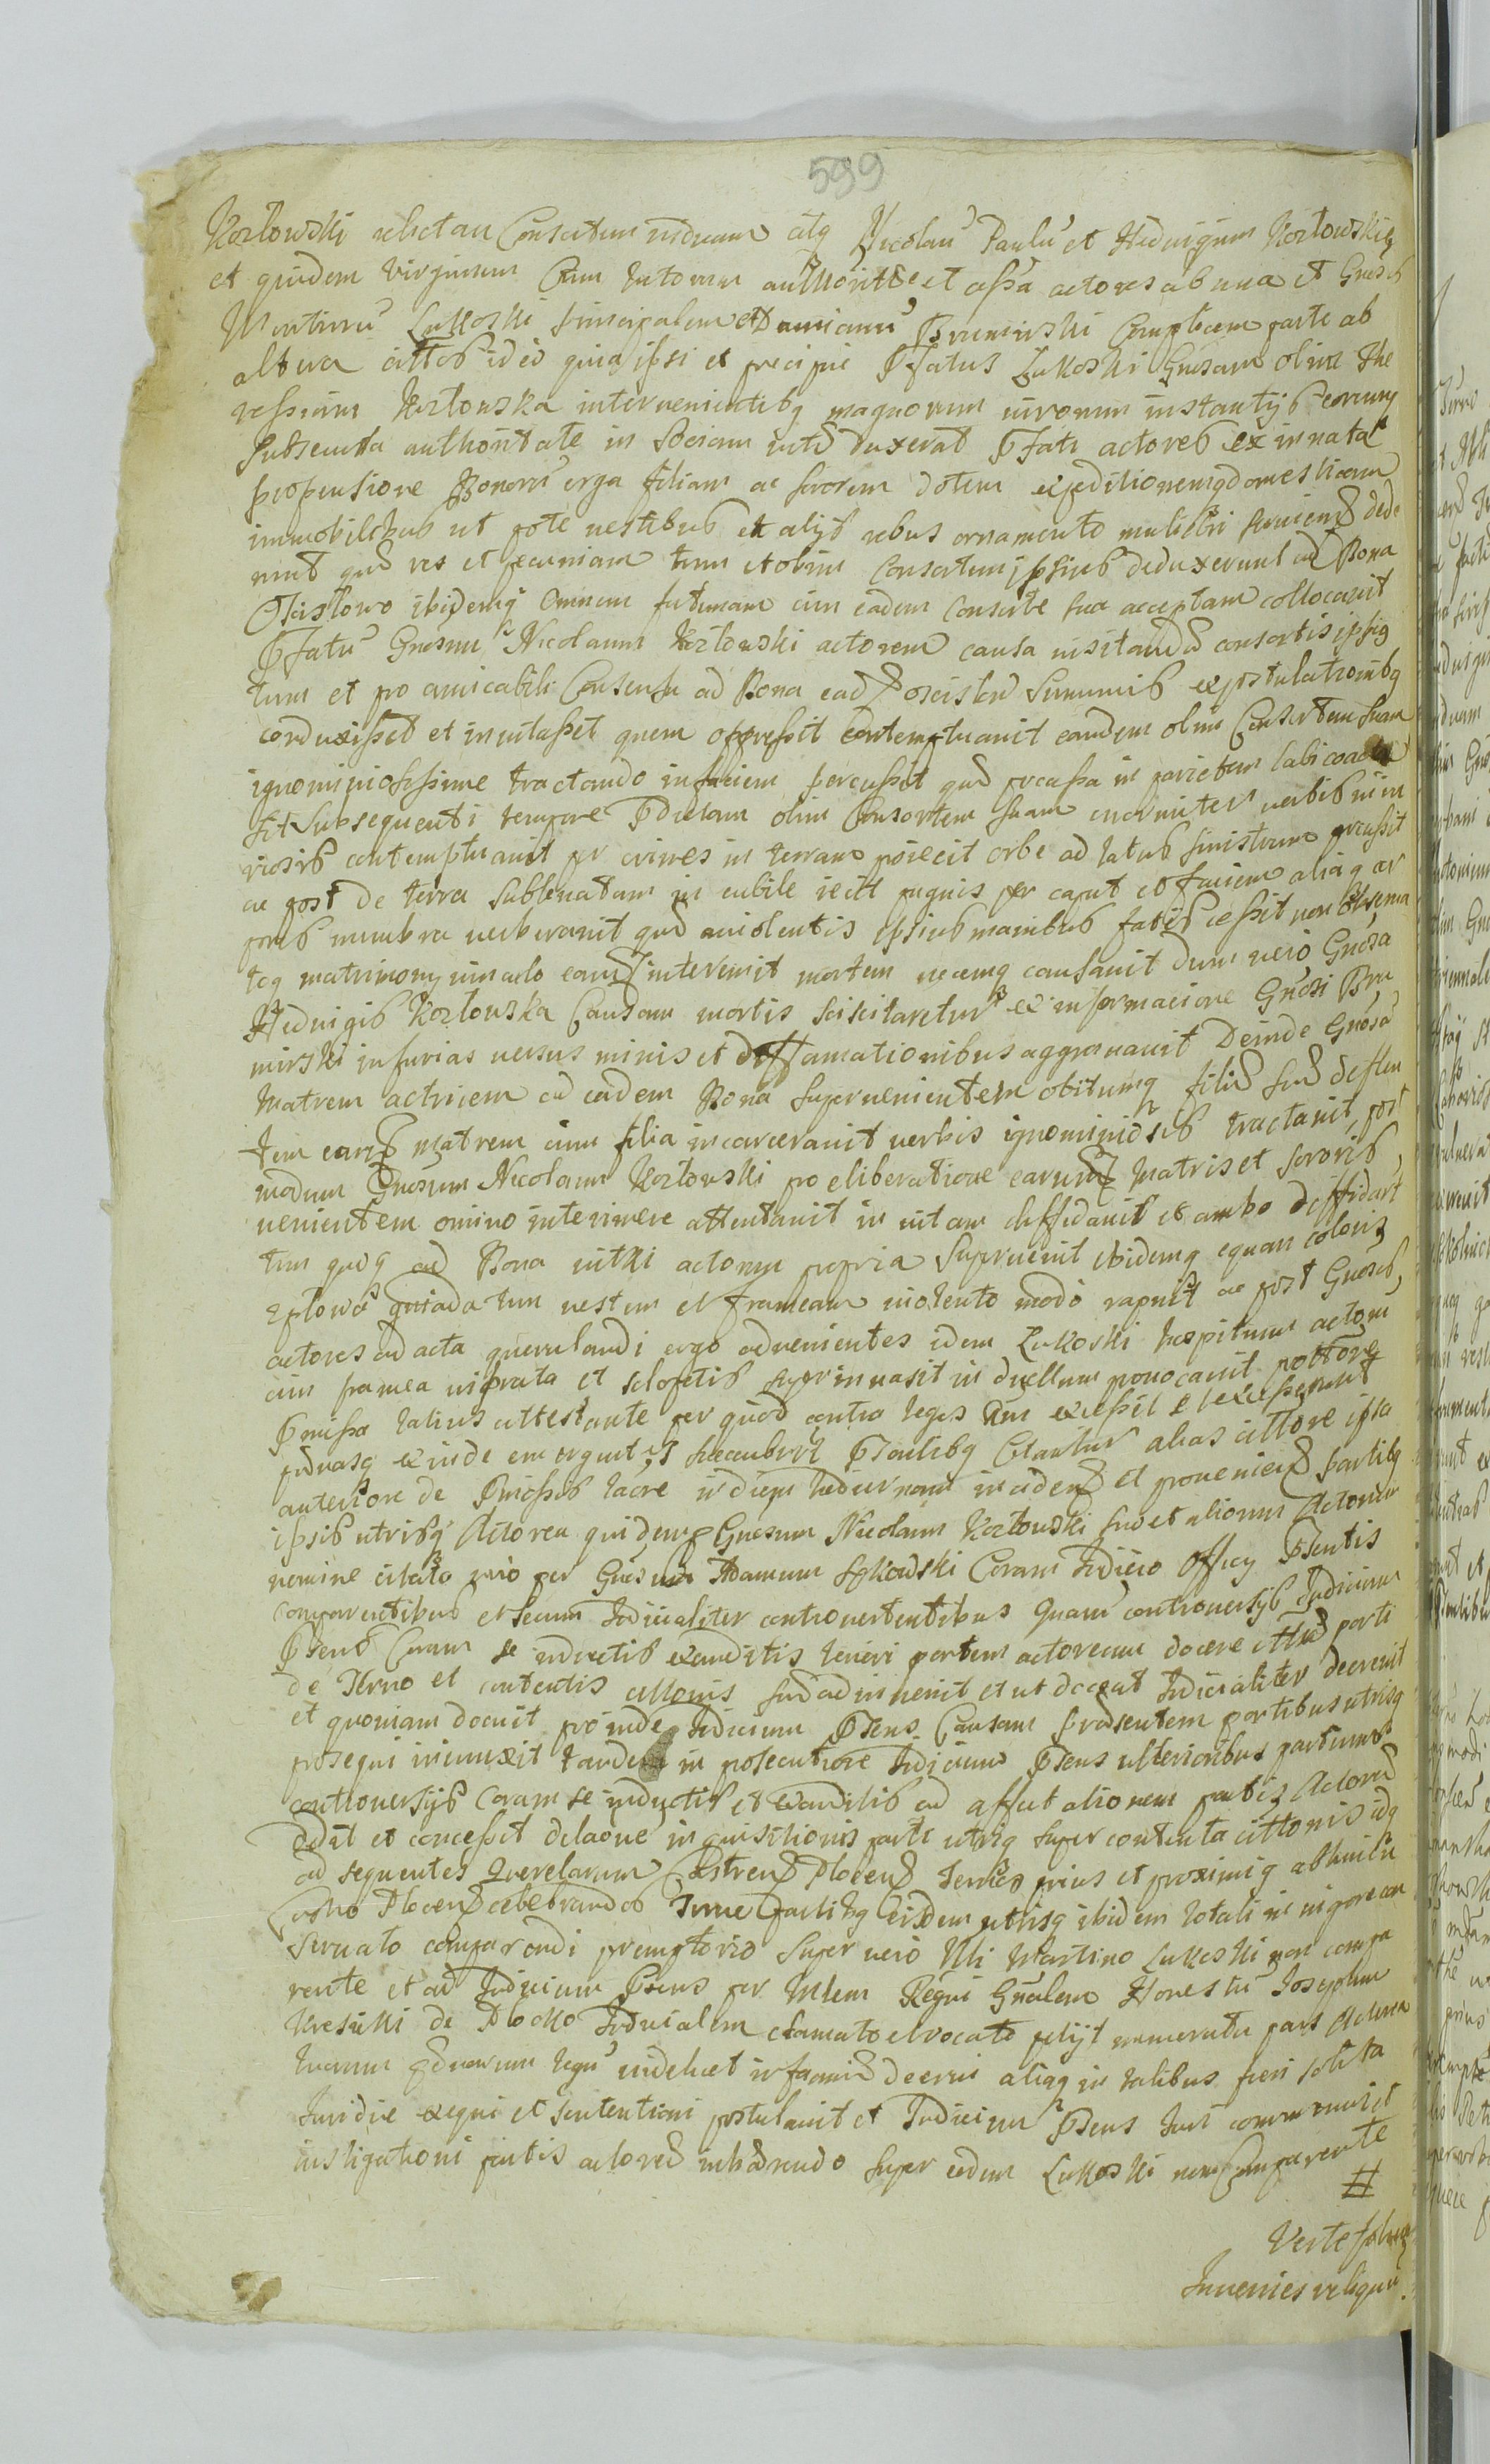 599
Kozłowski relictam Consortem viduam atq Nicolaū Paulū et Hedvigim Kozłowskie
et quidem virginem Cum tutorum authoritte et assa actores ab una et Gnosos
Martinū Lukoski principalem et Damianū Brumirski Complicem parte ab
altera cittos ideo quia ipsi et precipue Pfatus Lukoski Gnosam olim The
ressiam Kozłouska interuenientibq magnorum uirorum instantijs eorumq
subsecutta authoritate in Sociam vite duxerat Pfati actores ex innata
propensione Bonorū erga filiam ac sororem dotem expeditionemq domesticam
immobilibus ut pote uestibus et alijs rebus ornamento muliebri seruiend dede
runt quas res et pecuniam tum et olim Consortem ipsius deduxerunt ad Bona
Osisłowo ibidemq Omnem fortunam cum eadem Consorte sua acceptam collocauit
Pfatū Gnosum Nicolaum Kozłouski actorem causa uisitandæ consortis ipsiq
tum et pro amicabili Consensu ad Bona ead Poscisłowo Summis expostulationibq
conduxisset et inuitasset quem oppressit contemptuauit eandem olim Consortem suam
ignominiosissime tractando in faciem percussit quæ percussa in parietem labi coacta
sit Subsequenti tempore Pdictam olim Consortem suam enormiter uerbis iniu
riosis contemptuauit per crines in terram poiecit orbe ad latus sinistrum percussit
ac post de terra subleuatam in cubile iecit pugnis per caput et faciem aliaq cor
poris membra uerberauit quæ auiolentis ipsius manibus fatis cessit non obserua
toq matrimonij uinculo eand interemit mortem necemq causauit dum uero Gnosa
Hedvigis Kozłouska Causam mortis sciscitaretur ex informacione Gnosi Bru
mirski in furias uersus minis et diffamationibus aggrauauit Deinde Gnosā
Matrem actricem ad eadem Bona superuenientem obitumq filiæ suæ deflen
tem eand matrem cum filia incarcerauit uerbis ignominiosis tractauit, post
modum Gnosum Nicolaum Kozłouski pro eliberatione earund Matris et sororis
uenientem omnino interimere attentauit in uitam diffidauit et ambo diffidart
tum quoq ad Bona uitki actorum propria superuenit ibidemq equam coloris
 uestem et frameam uiolento modo rapuit ac post Gnosos
actores ad acta querulandi ergo aduenientes idem Lukoski hospitium actorū
cum framea uibrata et sclopetis superinuasit in duellum prouocauit 
Pmissa latius attestante per quod contra leges Rni excessit et excesserunt
pœnasq exinde emergentes succubuit Ptaelibq Citantur alias cittore ipso
anteriore de Pmissis lacre in diem hodiernam inciden et proueniend partibq
ipsis utrisq Actorea quidem p Gnosum Nicolaum Kozłouski suo et aliorum Actorum
nomine citata uero per Gnosum Adamum Sokowski Coram Judicio Officij Psentis
comparentibus et secum Judicialiter controuertentibus Quarū controuersijs Judicium
Psens Coram se inductis exauditis teneri partem actoream docere citta parti
de Termo et contentis cittonis suæ adinuenit et ut doceat Judicialiter decreuit
et quoniam docuit proinde Judicium Psens Causam præsentem partibus utrisq
prosequi iniunxit tandem in prosecutione Judicium Psens ulterioribus partium
controuersijs Coram se inductis et exauditis ad affectationem partis Actoreæ
dedit et concessit delaone inquisitionis parti utriq super contenta cittonis idq
ad sequentes Querelarum Castrens Plocens Terminos prius et proximiq abhinc in
Castro Plocens celebrandos Terme partibq eisdem utrisq ibidem totali in uigore con
seruato comparendi peremptorio Super uero Nli Martino Lukoski non compa
rente et ad Judicium Psens per Mlem Regni Gnalem Honestū Josephum
Kresicki de Płocko Judicialem clamato et vocato petijt memorata pars Actorea
luarum pœnarum legū uidelicet infamiæ decerni aliaq in talibus fieri solita
Juridice exequi et sententiari postulauit et Judicium Psens Juri communi et
instigationi partis actoreæ inhærendo super eodem Lukoski non Comparente
#
Verte folium
Inuenies reliquū